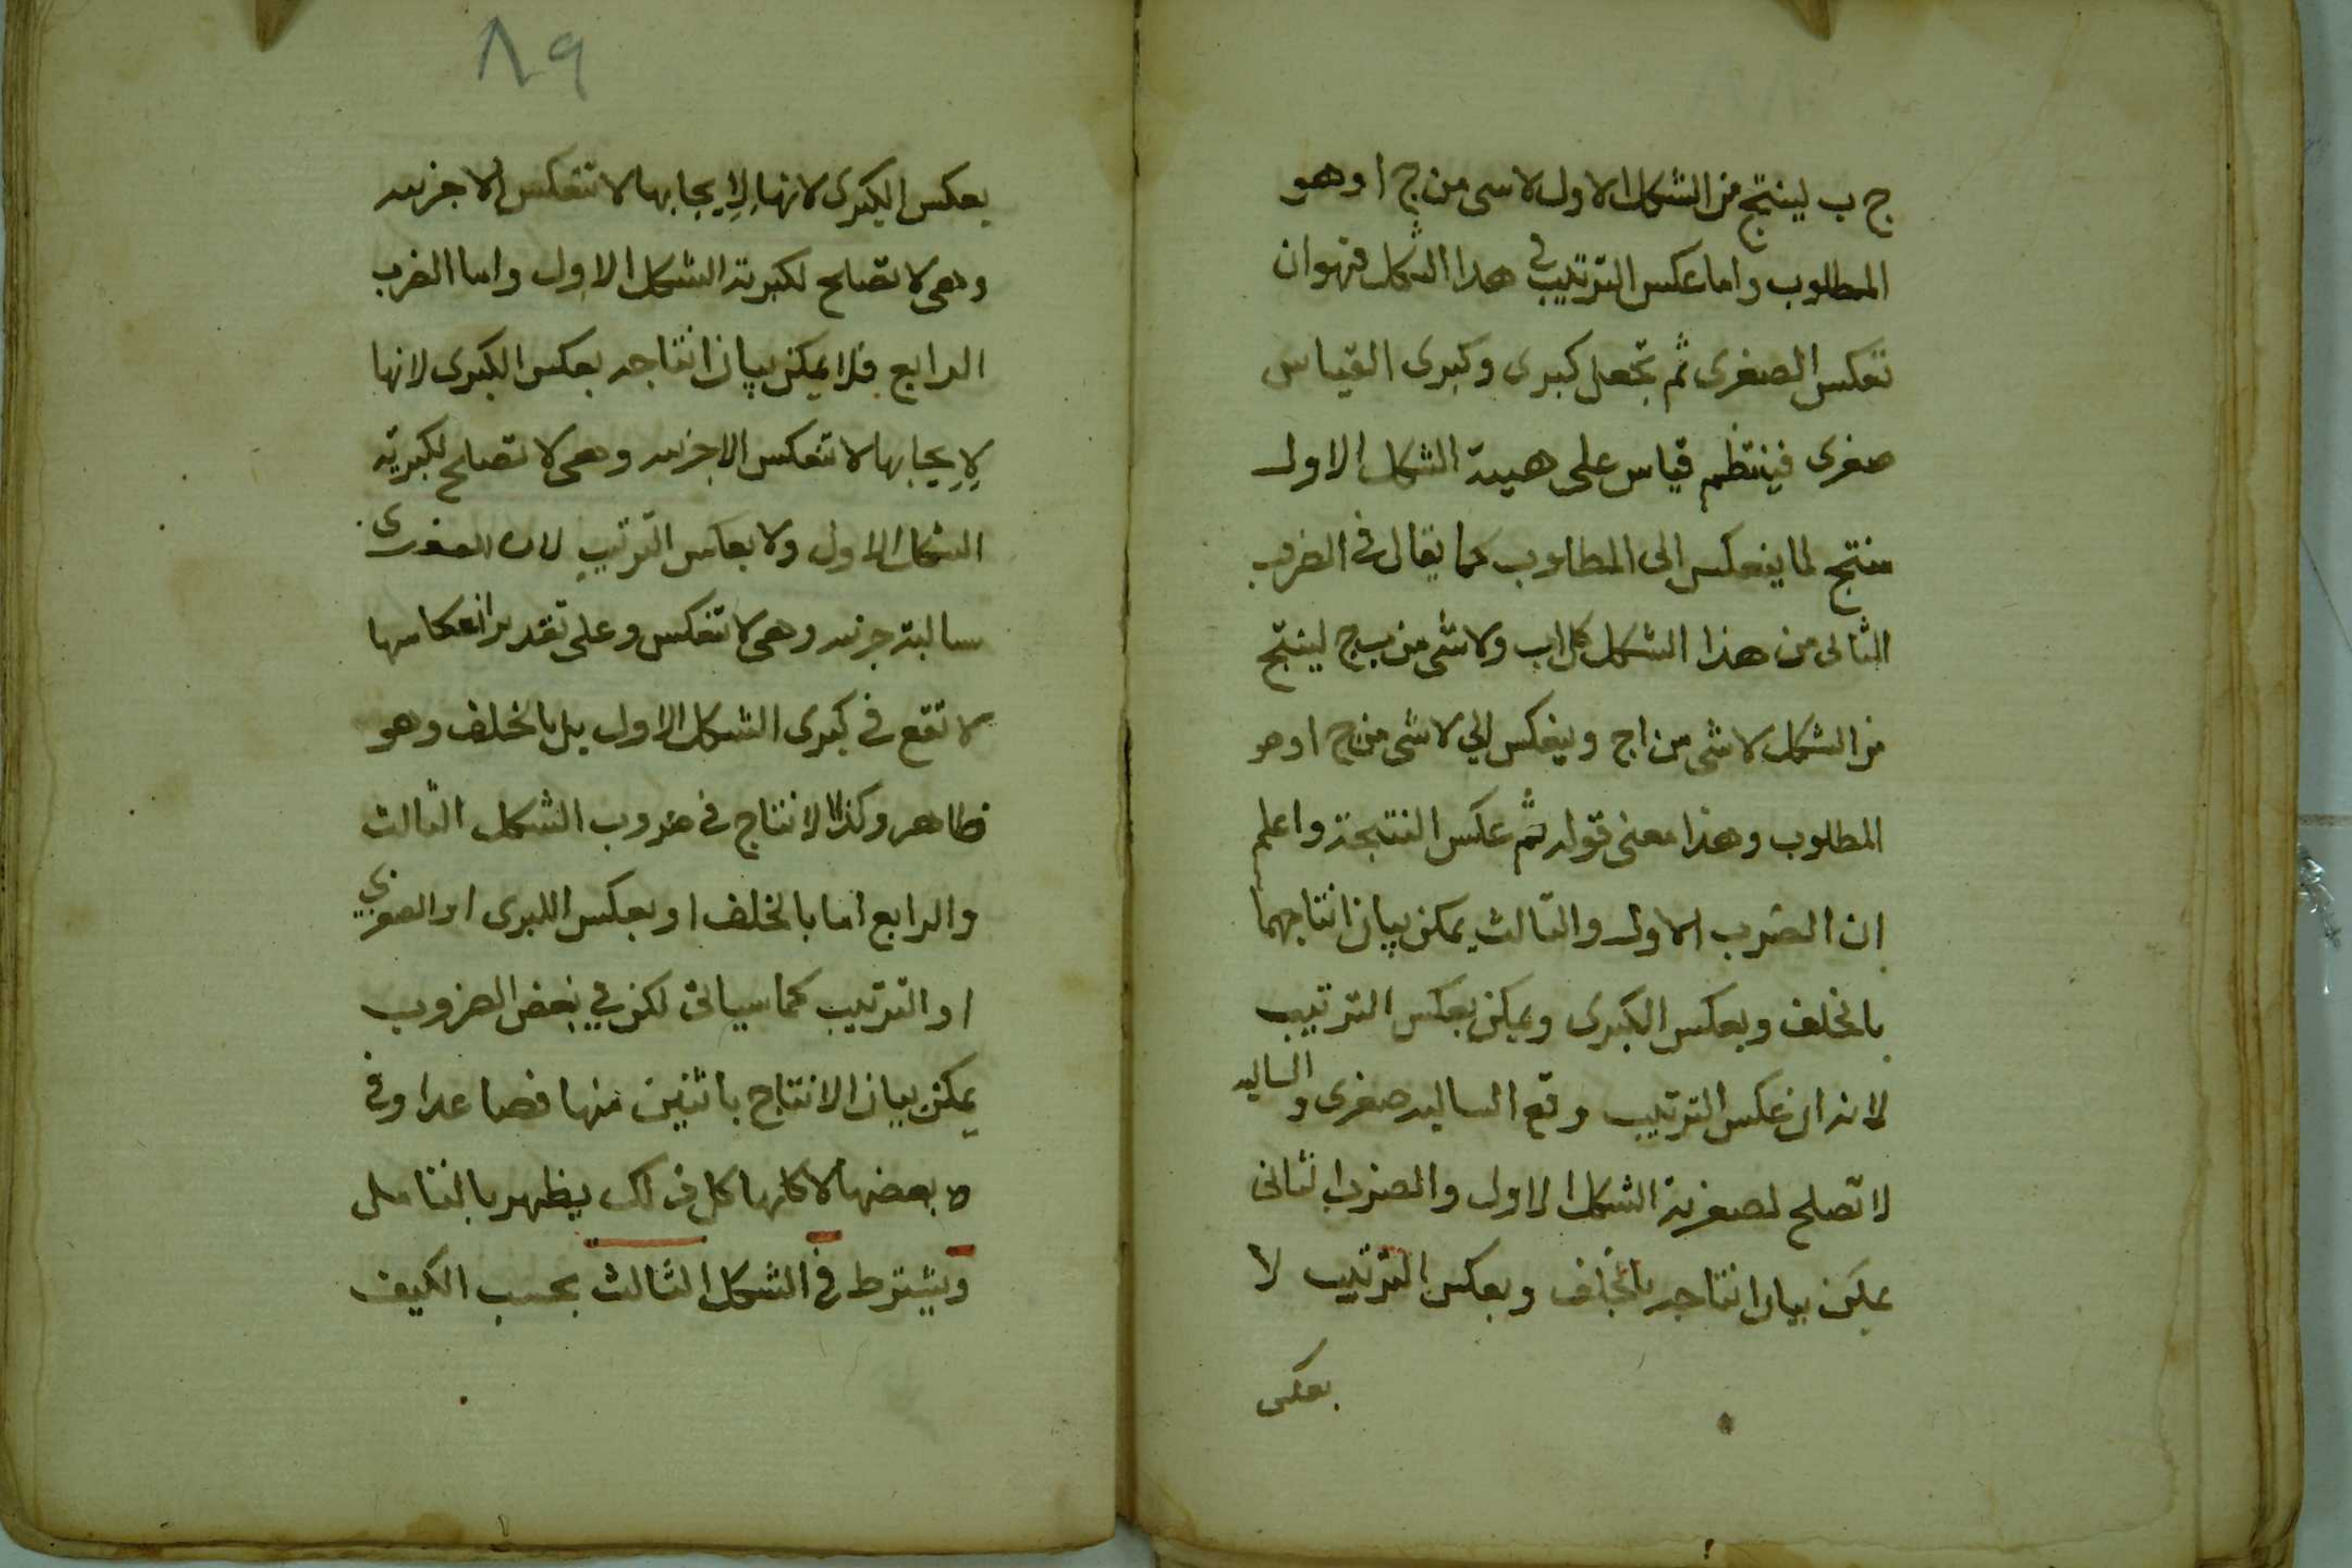 ج ب لينتج من الشكل الاول لاسى من ج ا وهو
المطلوب واما عكس الترتيب في هدا الشكل فهو ان
تعكس الصغرى ثم تجعل كبرى وكبرى القياس
صغرى فينتظم قياس على هيىة الشكل الاول
منتج لما ينعكس الى المطلوب كما يقال في الضرب
الثانى من هذا الشكل كل اب ولاشى من ب ج لينتج
من الشكل لاشى من اج وينعكس الي لاشى من ج ا وهو
المطلوب وهذا معنى قوله ثم عكس النتيجة واعلم
ان الضرب الاول والثالث يمكن بيان انتاجهما
بالخلف وبعكس الكبرى ويمكن بعكس الترتيب
لانه ان عكس الترتيب وقع السالبه صغرى والسالبه
لا تصلح لصغرية الشكل الاول والضرب الثانى
يمكن بيان انتاجه بالخلف وبعكس الترتيب لا
بعكس
٨٩
بعكس الكبرى لانها لايجابها لا تنعكس الا جزىىه
وهى لا تصلح لكبرية الشكل الاول واما الضرب
الرابع فلا يمكن بيان انتاجه بعكس الكبرى لانها
لايجابها لا تنعكس الا جزىىه وهى لا تصلح لكبرية
الشكل الاول ولا بعكس الترتيب لان الصغرى
سالبة جزىىه وهى لا تنعكس وعلى تقدير انعكاسها
لا تقع في كبرى الشكل الاول بل بالخلف وهو
ظاهر وكذا الانتاج في ضروب الشكل الثالث
والرابع اما بالخلف او بعكس الكبرى او الصغري
او الترتيب كما سياتى لكن في بعض الضروب
يمكن بيان الانتاج باثنين منها فصاعدا وفي
بعضها لا كلها كل ذلك يظهر بالتامل
ويشترط في الشكل الثالث بحسب الكيف